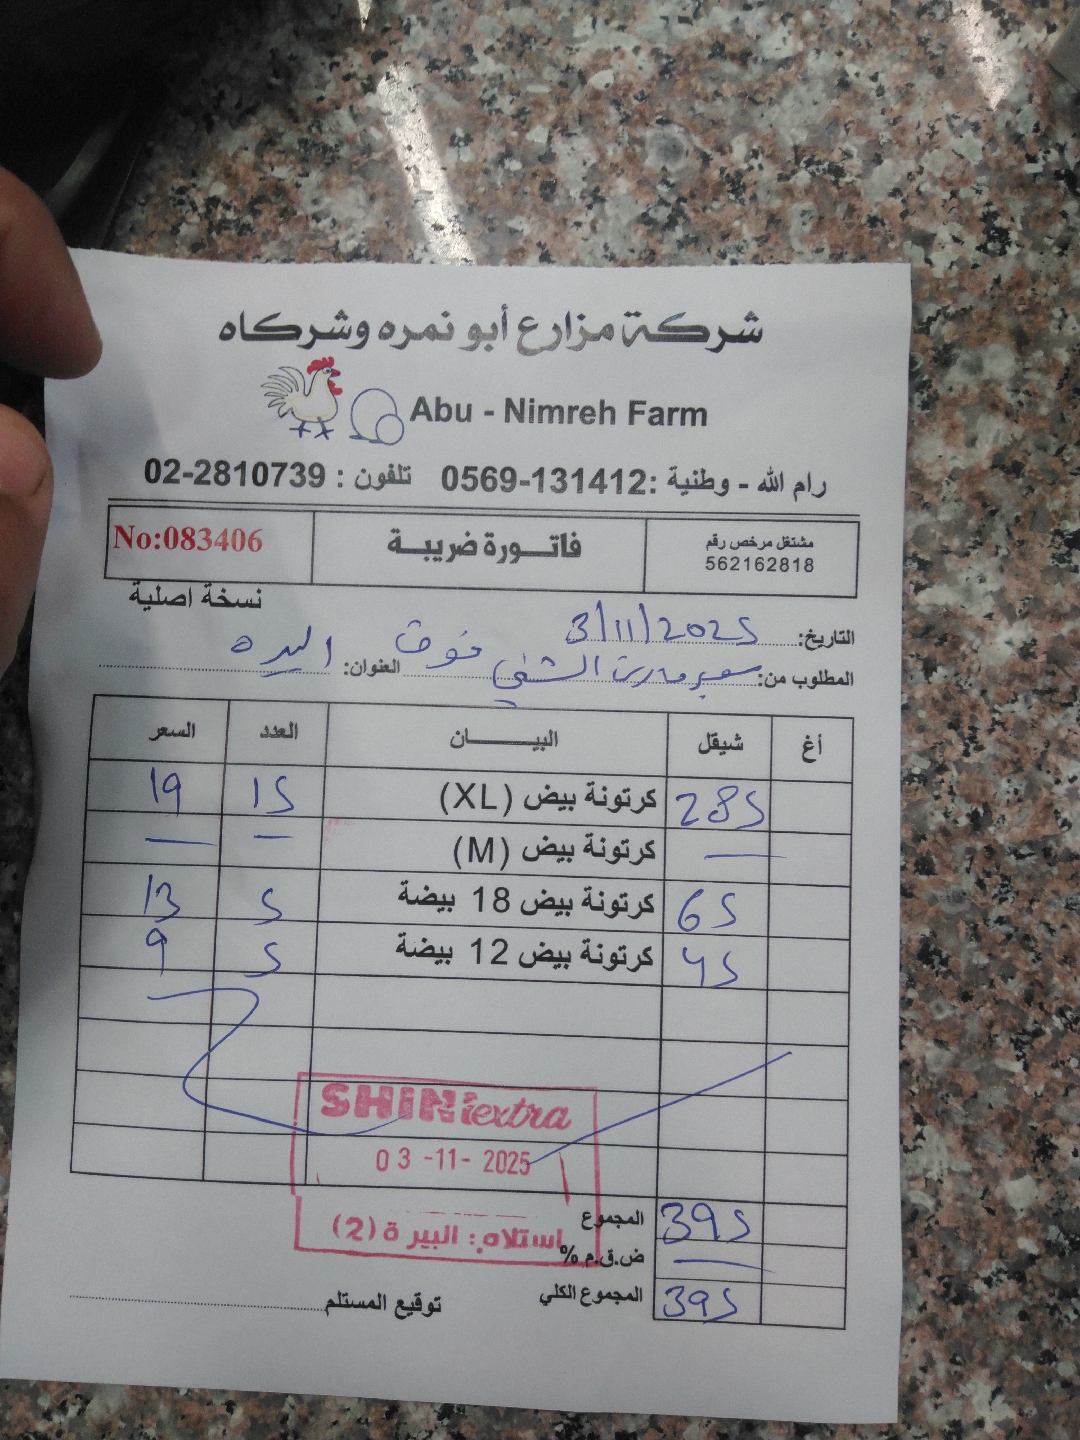 شركة مزارع أبو نمره وشركاه
Abu - Nimreh Farm
رام الله - وطنية :0569-131412 تلفون : 02-2810739
مشتغل مرخص رقم
562162818
فاتورة ضريبة
No:083406
نسخة اصلية
التاريخ: 3/11/2025
المطلوب من: سوبر مارت الشني فوق العنوان: البيره
أغ شيقل البيــــان العدد السعر
285 كرتونة بيض (XL) 15 19
— كرتونة بيض (M) — —
65 كرتونة بيض 18 بيضة 5 13
45 كرتونة بيض 12 بيضة 5 9
SHINI extra
03-11-2025
استلام: البيرة (2)
المجموع 395
ض.ق.م % —
المجموع الكلي 395
توقيع المستلم